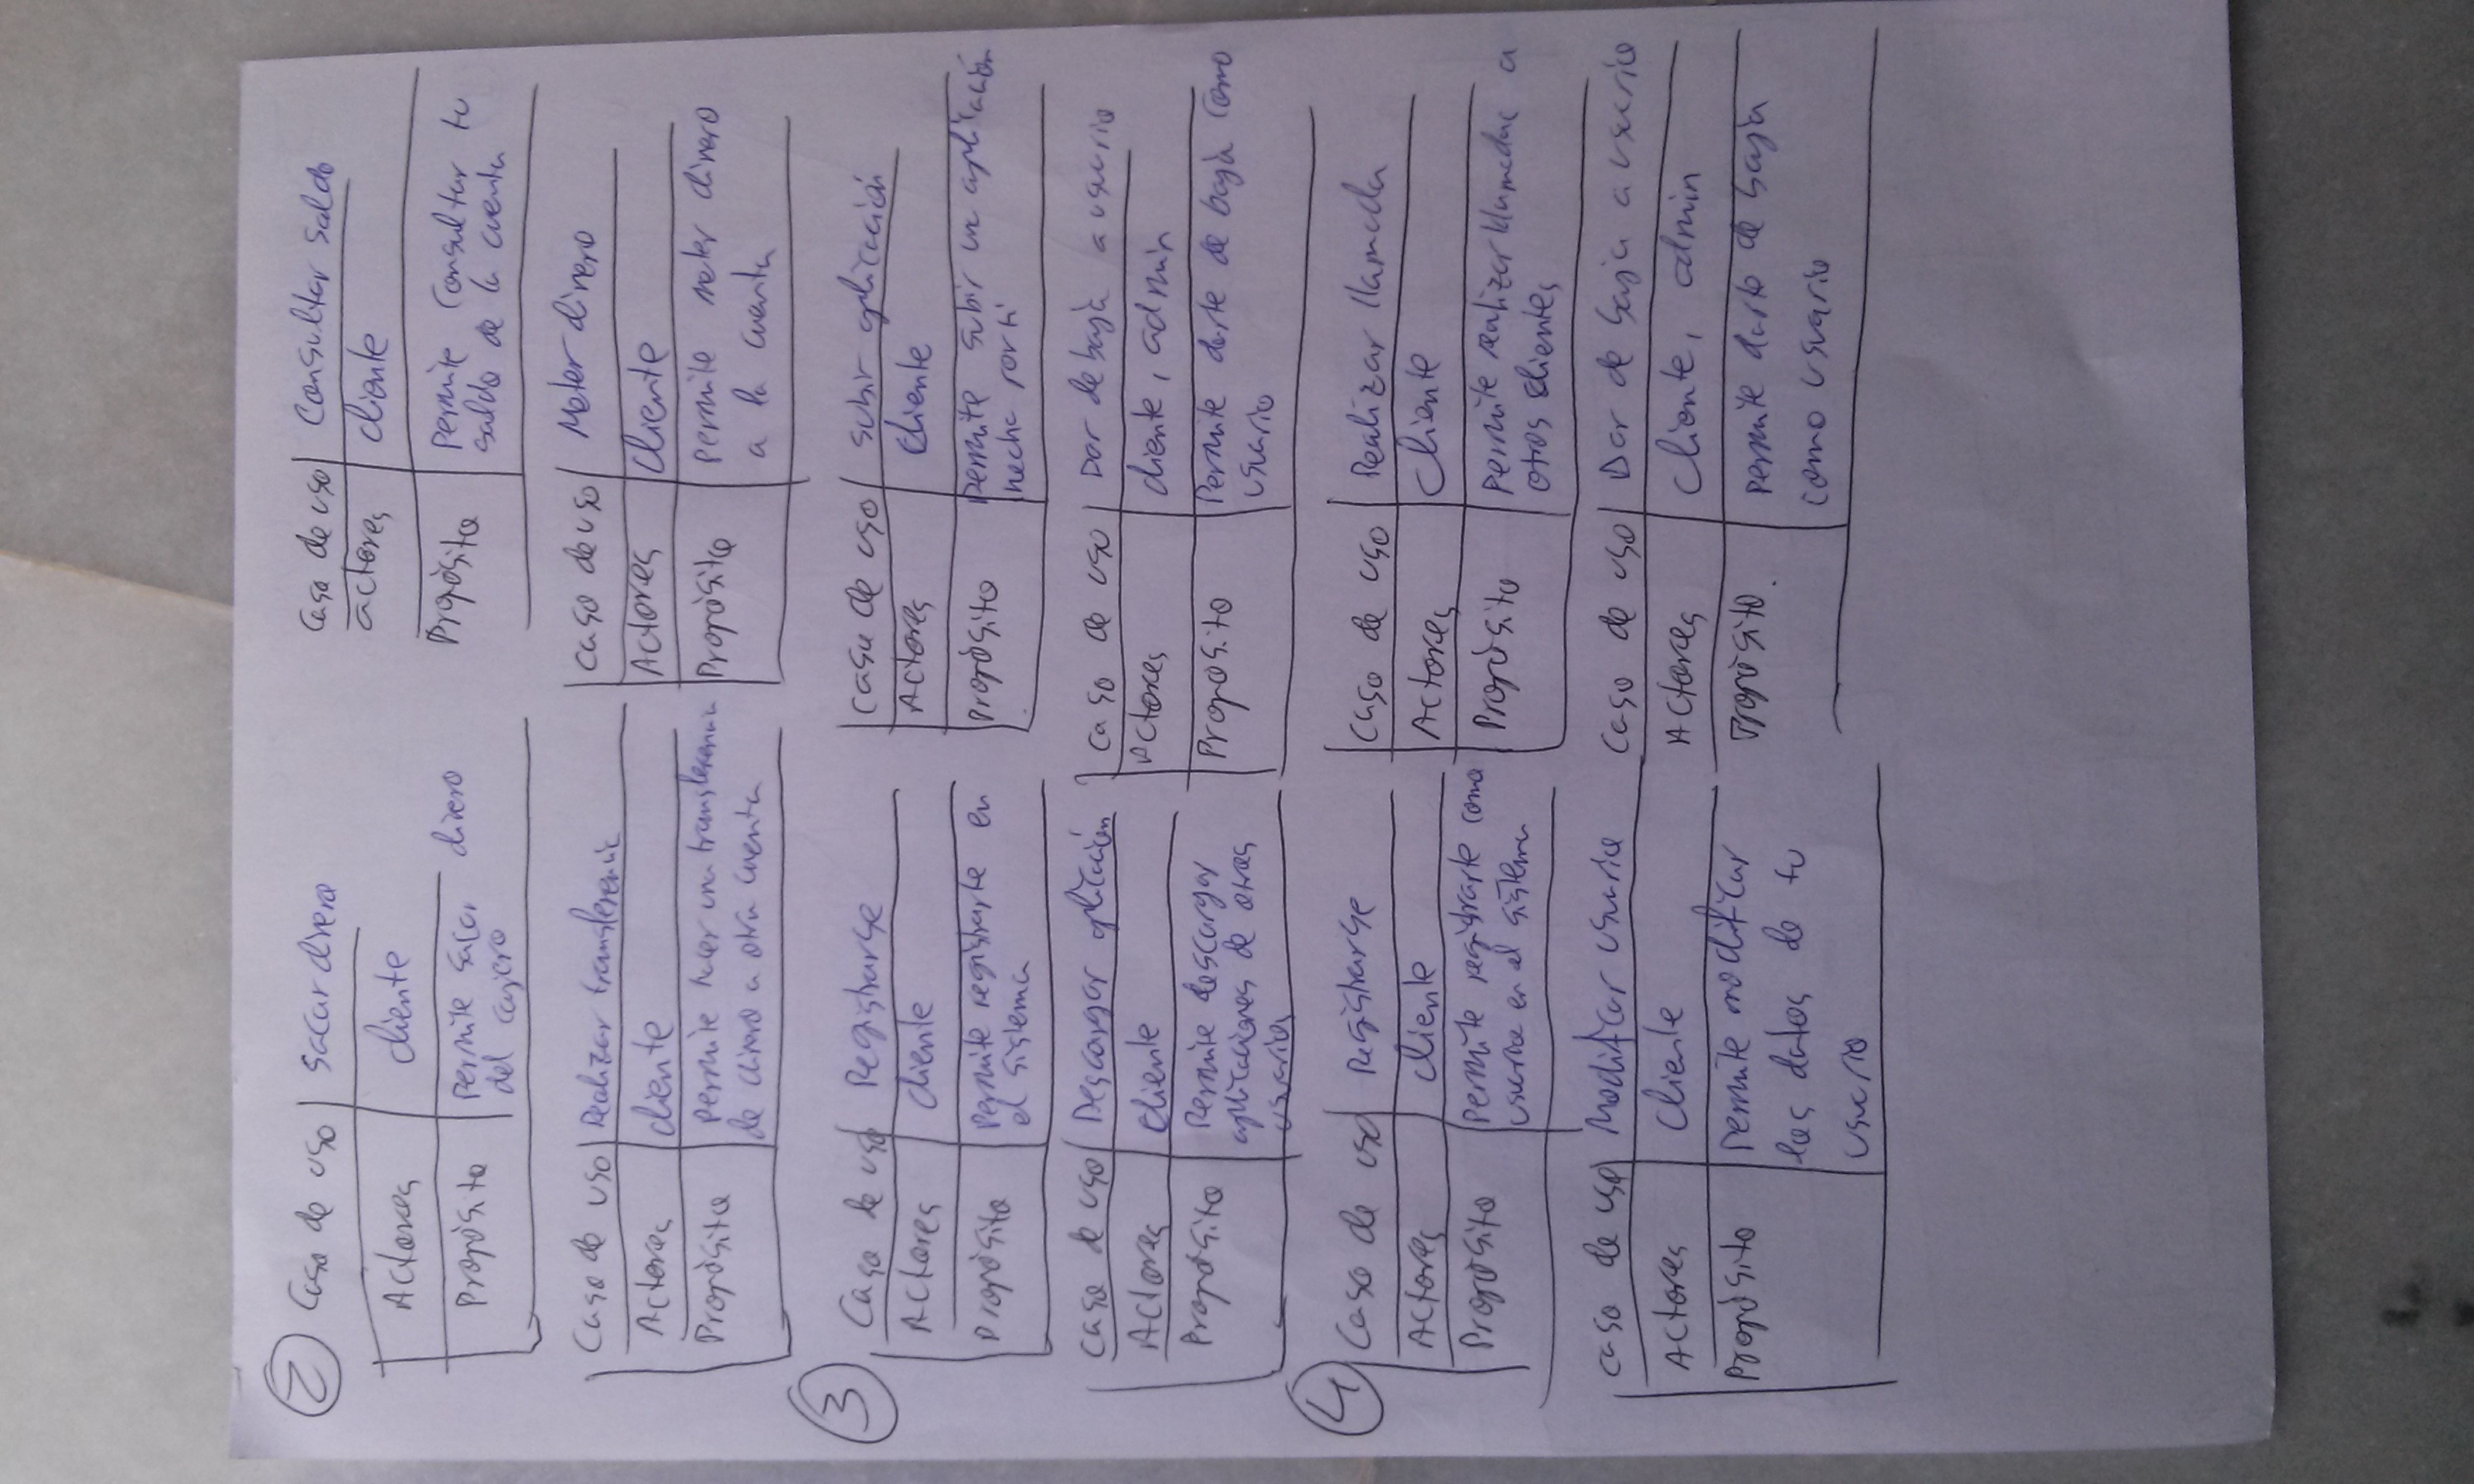 2
Caso de uso | Sacar dinero
Actores | cliente
Propósito | Permite sacar dinero
del cajero
Caso de uso | Consultar saldo
actores | cliente
Propósito | Permite consultar tu
saldo de la cuenta
Caso de uso | Realizar transferencia
Actores | cliente
Propósito | Permite hacer una transferencia
de dinero a otra cuenta
Caso de uso | Meter dinero
Actores | Cliente
Propósito | Permite meter dinero
a la cuenta
3
Caso de uso | Registrarse
Actores | cliente
Propósito | Permite registrarte en
el sistema
Caso de uso | Subir aplicación
Actores | Cliente
Propósito | Permite subir una aplicación
hecha por ti
Caso de uso | Descargar aplicación
Actores | Cliente
Propósito | Permite descargar
aplicaciones de otros
usuarios
Caso de uso | Dar de baja a usuario
Actores | cliente, admin
Propósito | Permite darte de baja como
usuario
4
Caso de uso | Registrarse
Actores | cliente
Propósito | Permite registrarte como
usuario en el sistema
Caso de uso | Realizar llamada
Actores | Cliente
Propósito | Permite realizar llamadas a
otros clientes
Caso de uso | Modificar usuario
Actores | Cliente
Propósito | Permite modificar
los datos de tu
usuario
Caso de uso | Dar de baja a usuario
Actores | Cliente, admin
Propósito. | Permite darte de baja
como usuario